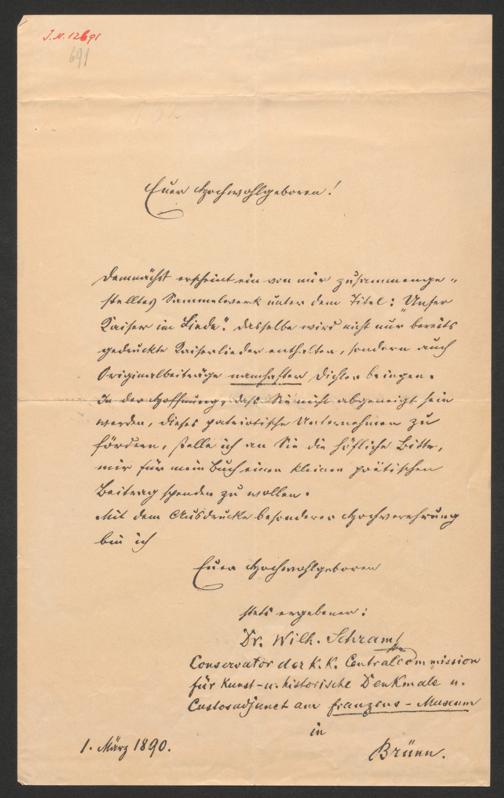 J.N. 12691
691
Euer Hochwohlgeboren!
Demnächst erscheint ein von mir zusammenge-
stelltes Sammelwerk unter dem Titel: "Unser
Kaiser im Liede". Dasselbe wird nicht nur bereits
gedruckte Kaiserlieder enthalten, sondern auch
Originalbeiträge namhafter Dichter bringen.
In der Hoffnung, daß Sie nicht abgeneigt sein
werden, dieses patriotische Unternehmen zu
fördern, stelle ich an Sie die höfliche Bitte,
mir für mein Buch einen kleinen poetischen
Beitrag spenden zu wollen.
Mit dem Ausdrucke besonderer Hochverehrung
bin ich
Euer Hochwohlgeboren
stets ergebener:
Dr. Wilh. Schram
Conservator der k. k. Centralcommission
für Kunst- u. historische Denkmale u.
Custosadjunct am Franzens-Museum
in
Brünn.
1. März 1890.